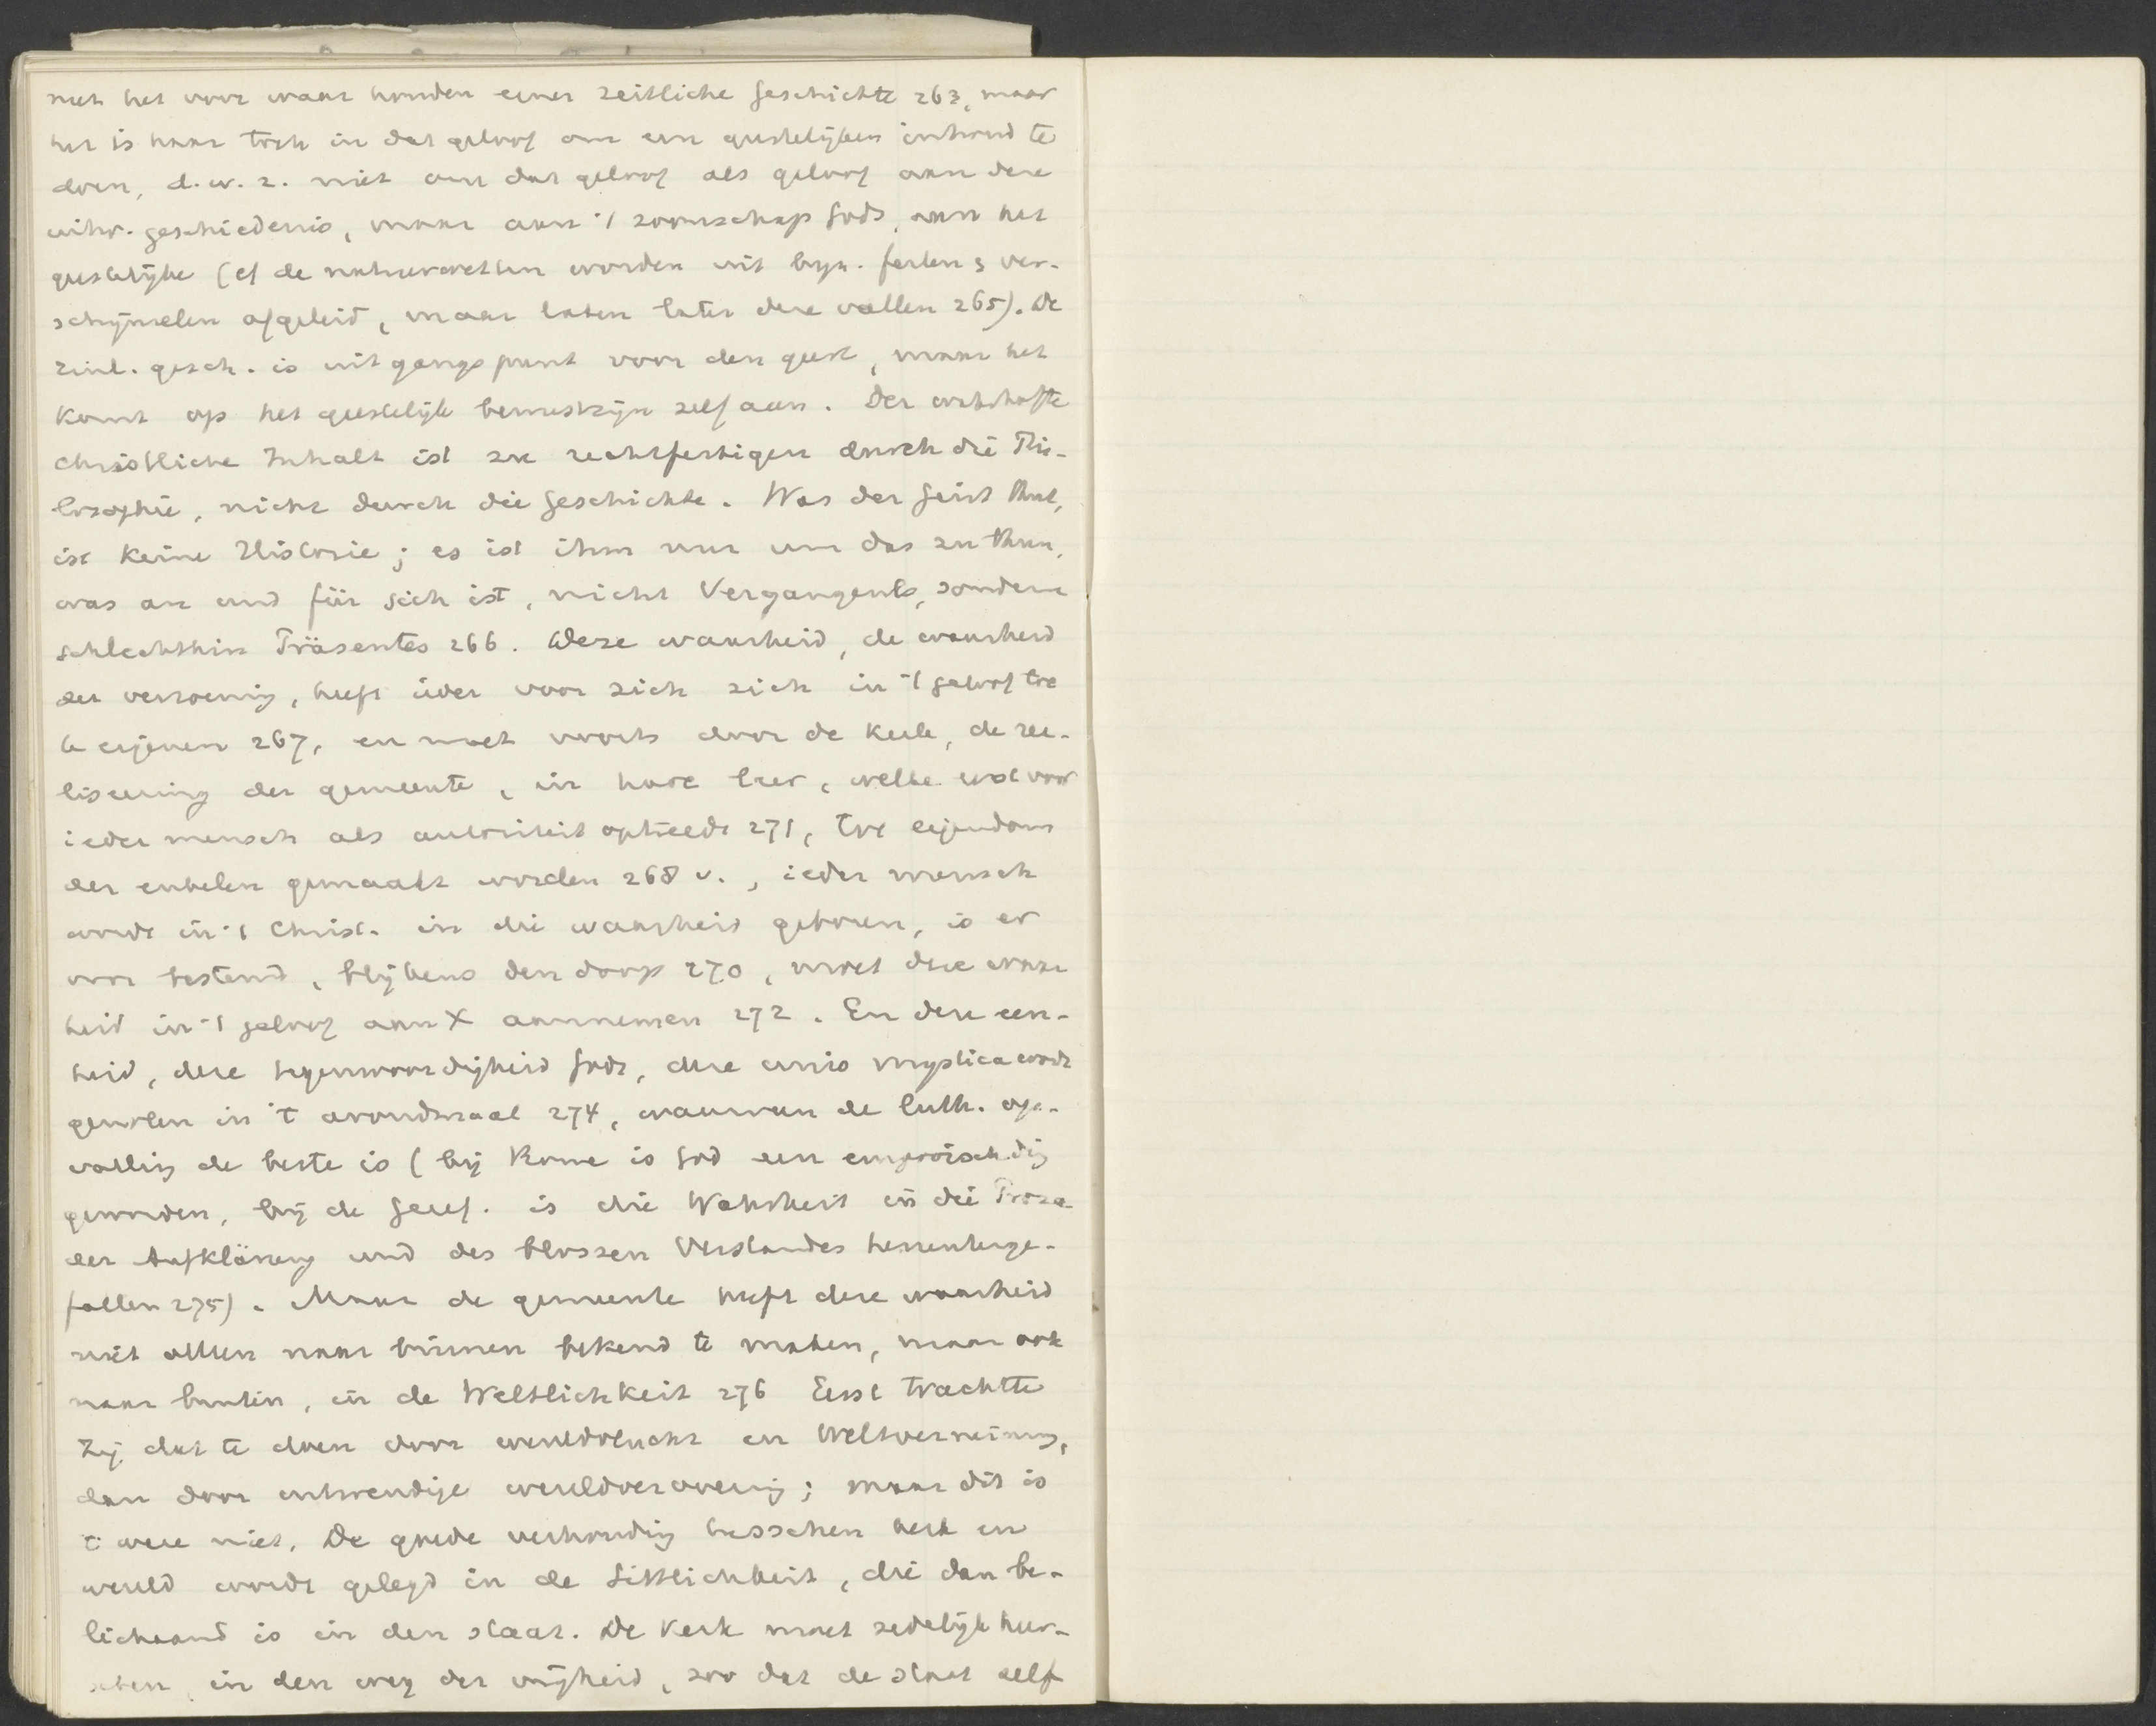 met het voor waar houden einer zeitliche Geschichte 263, maar
het is haar toch in dat geloof om een geestelijken inhoud te
doen, d.w.z. niet om dat geloof als geloof aan deze
uitw. geschiedenis, maar aan 't zoonschap Gods, aan het
geestelijke (cf de natuurwetten worden uit bijz. feiten & ver-
schijnselen afgeleid, maar laten later deze vallen 265). De
zinl. gesch. is uitgangspunt voor den geest, maar het
komt op het geestelijk bewustzijn zelf aan. Der wahrhafte
christliche Inhalt ist zu rechtfertigen durch die Phi-
losophie, nicht durch die Geschichte. Was der Geist thut,
ist keine Historie; es ist ihm nur um das zu thun,
was an und für sich ist, nicht Vergangenes, sondern
schlechthin Präsentes 266. Deze waarheid, de waarheid
der verzoening, heeft ieder voor zich zich in 't geloof toe
te eigenen 267, en moet voorts door de kerk, de rea-
liseering der gemeente, in hare leer, welke eerst voor
ieder mensch als autoriteit optreedt 271, tot eigendom
der enkelen gemaakt worden 268 v., ieder mensch
wordt in 't Christ. in die waarheid geboren, is er
voor bestemd, blijkens den doop 270, moet deze waar
heid in 't geloof aan X aannemen 272. En deze een-
heid, deze tegenwoordigheid Gods, deze unio mystica wordt
genoten in 't avondmaal 274, waarvan de luth. op-
vatting de beste is (bij Rome is God een empirisch ding
geworden, bij de Geref. is die Wahrheit in die Prosa
der Aufklärung und des blossen Verstandes herunterge-
fallen 275). Maar de gemeente heeft deze waarheid
niet alleen naar binnen bekend te maken, maar ook
naar buiten, in de Weltlichkeit 276 Eerst trachtte
Zij dat te doen door wereldvlucht en Weltverneinung,
dan door uitwendige wereldverovering; maar dit is
't ware niet. De goede verhouding tusschen kerk en
wereld wordt gelegd in de Sittlichkeit, die dan be-
lichaamd is in den staat. De kerk moet zedelijk heer-
schen, in den weg der vrijheid, zoo dat de staat zelf